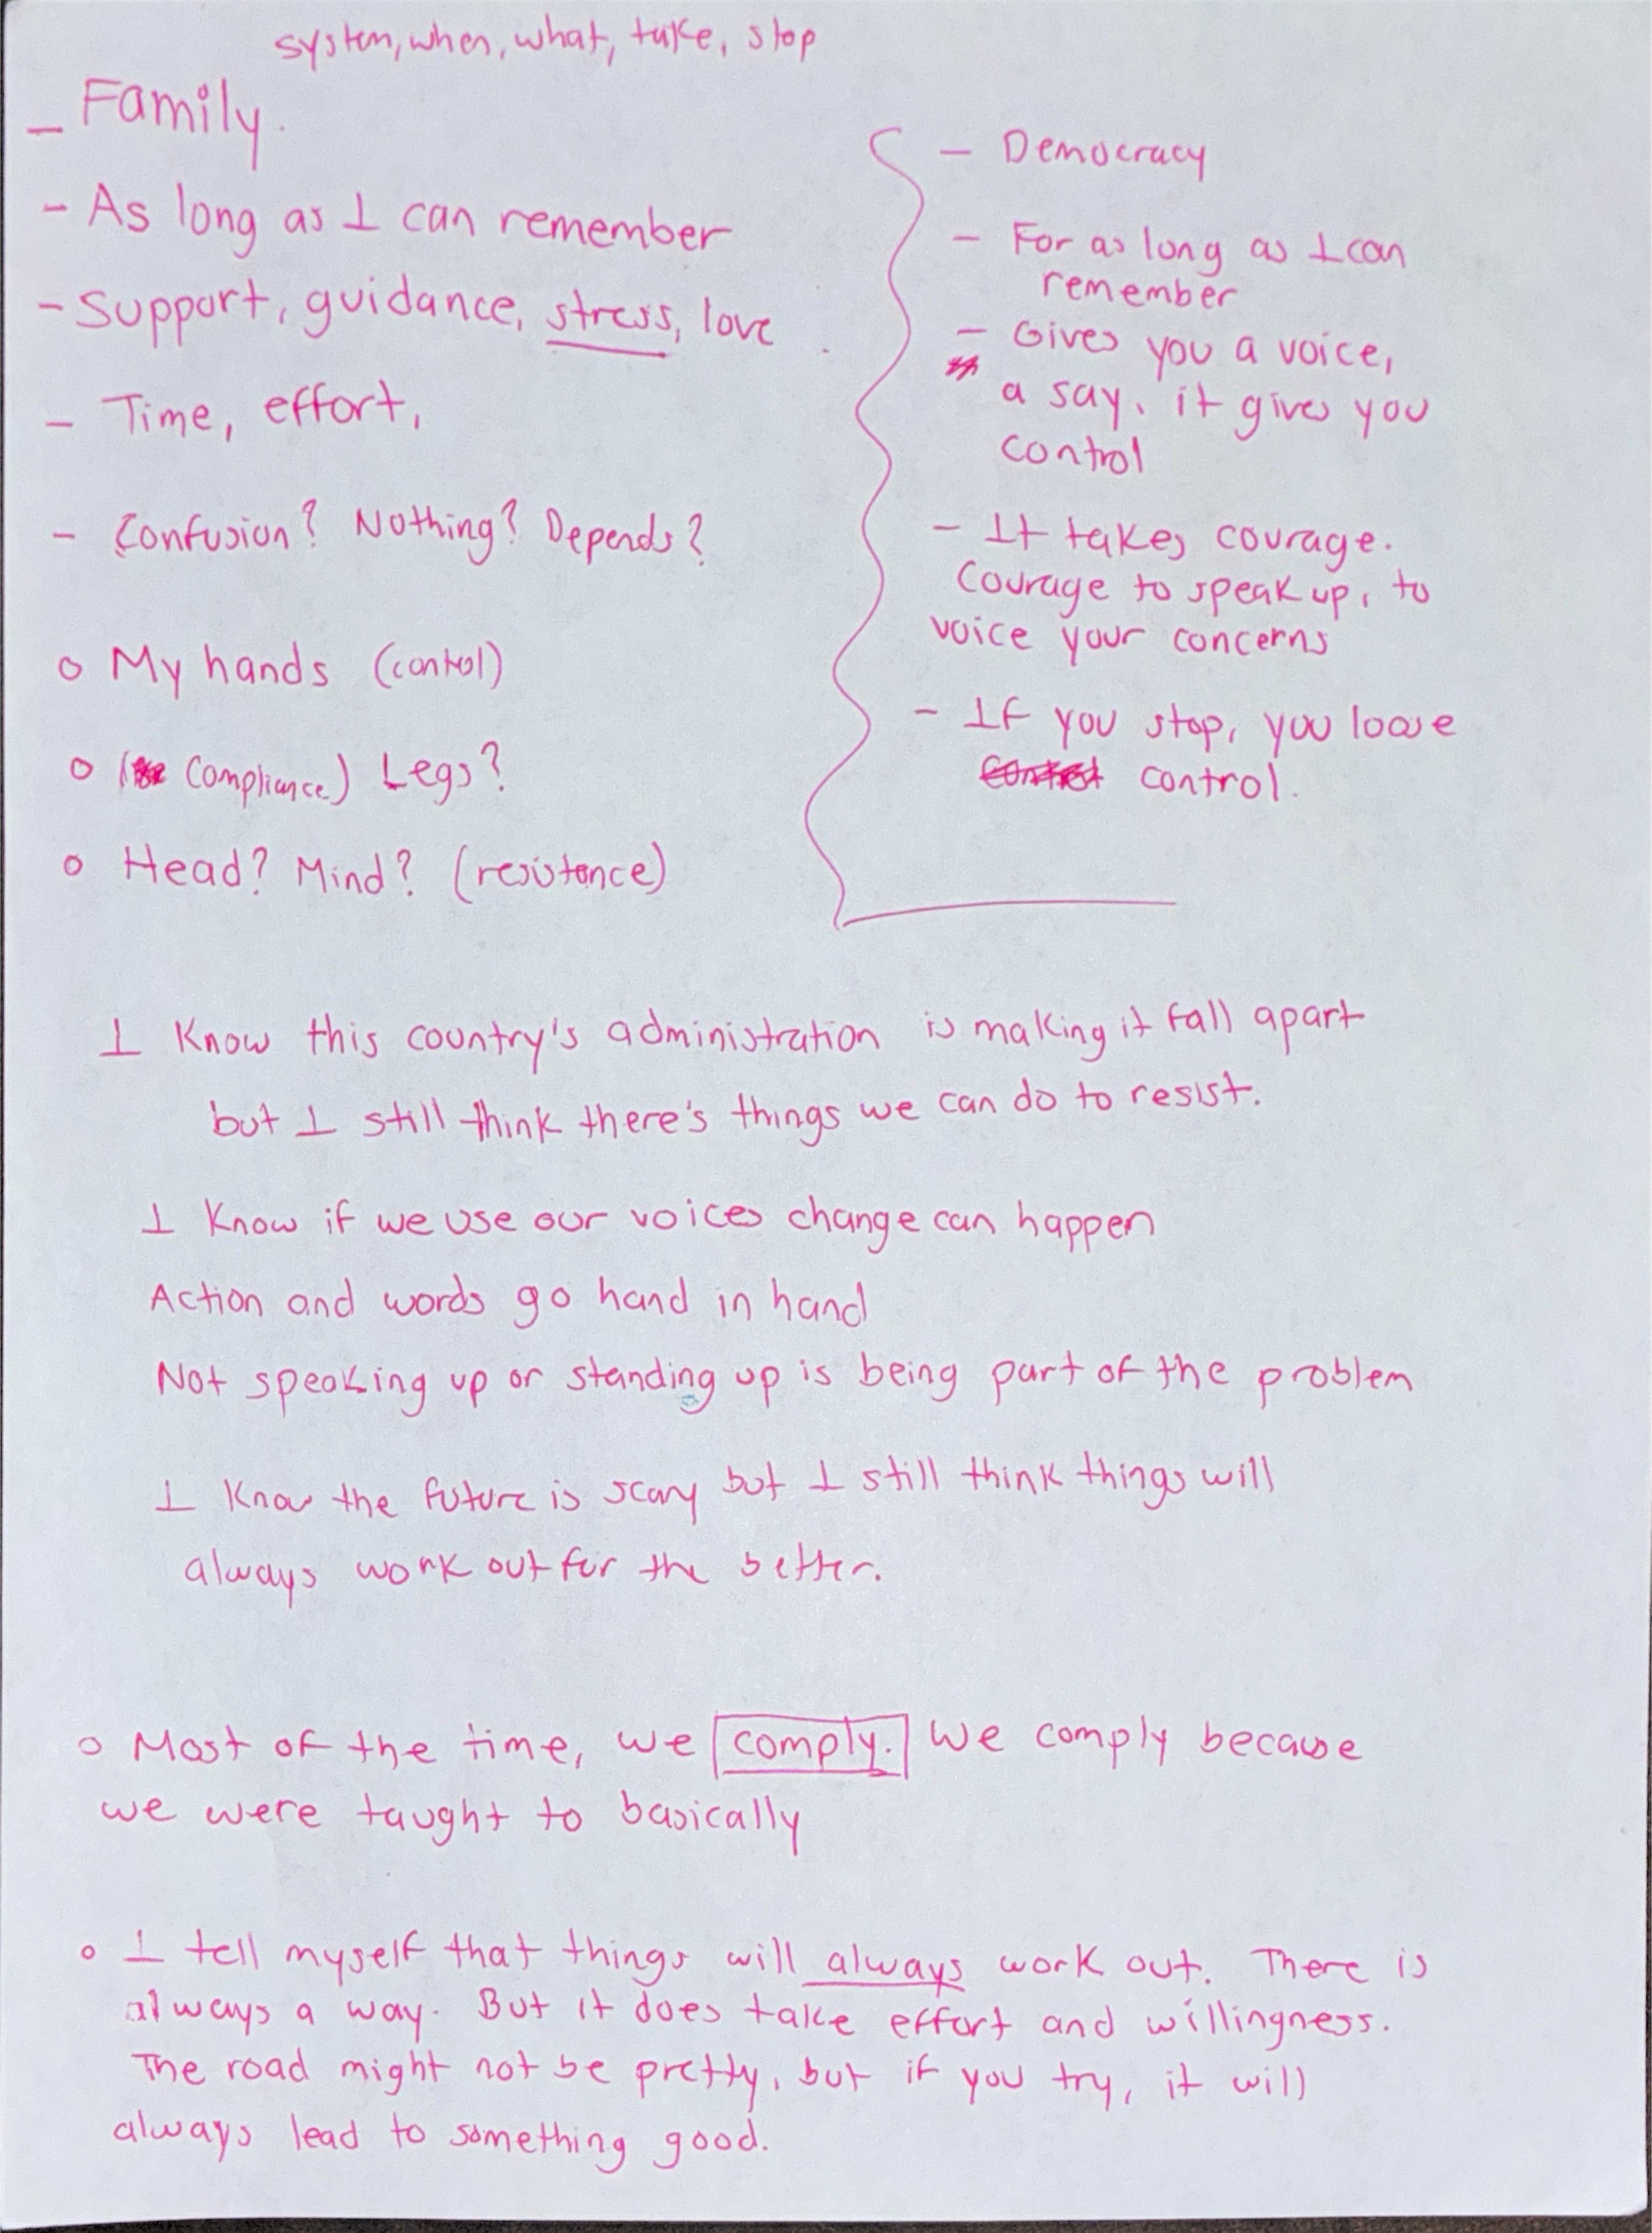 system, when, what, take, stop
- Family.
- As long as I can remember
- Support, guidance, stress, love
- Time, effort,
- Confusion? Nothing? Depends?
o My hands (control)
o (Compliance) Legs?
o Head? Mind? (resistence)
- Democracy
- For as long as I can
remember
- Gives you a voice,
a say, it gives you
control
- It takes courage.
Courage to speak up, to
voice your concerns
- If you stop, you loose
control.
I know this country's administration is making it fall apart
but I still think there's things we can do to resist.
I know if we use our voices change can happen
Action and words go hand in hand
Not speaking up or standing up is being part of the problem
I know the future is scary but I still think things will
always work out for the better.
o Most of the time, we comply. We comply because
we were taught to basically
o I tell myself that things will always work out. There is
always a way. But it does take effort and willingness.
The road might not be pretty, but if you try, it will
always lead to something good.